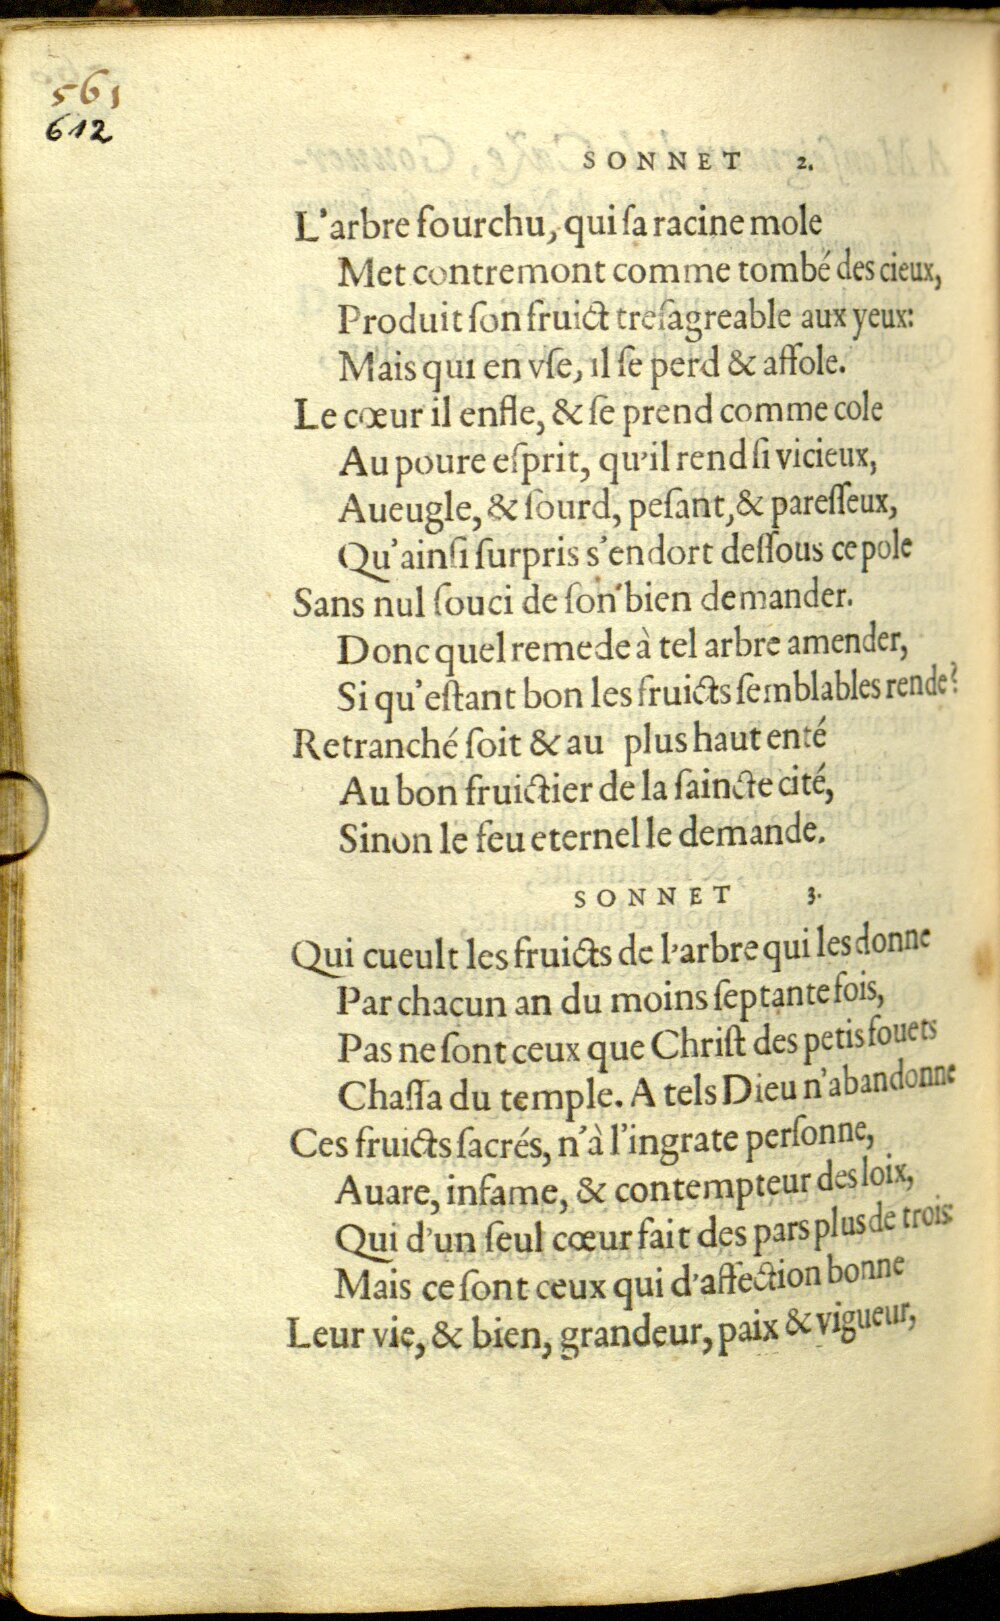 561
612
SONNET 2.
L'arbre fourchu, qui ſa racine mole
Met contremont comme tombé des cieux,
Produit ſon fruict treſagreable aux yeux:
Mais qui en vſe, il ſe perd & affole.
Le cœur il enfle, & ſe prend comme cole
Au poure eſprit, qu'il rend ſi vicieux,
Aueugle, & ſourd, peſant, & pareſſeux,
Qu'ainſi ſurpris s'endort deſſous ce pole
Sans nul ſouci de ſon bien demander.
Donc quel remede à tel arbre amender,
Si qu'eſtant bon les fruicts ſemblables rende?
Retranché ſoit & au plus haut enté
Au bon fruictier de la ſaincte cité,
Sinon le feu eternel le demande.
SONNET 3.
Qui cueult les fruicts de l'arbre qui les donne
Par chacun an du moins ſeptante fois,
Pas ne ſont ceux que Chriſt des petis fouets
Chaſſa du temple. A tels Dieu n'abandonne
Ces fruicts ſacrés, n'à l'ingrate perſonne,
Auare, infame, & contempteur des loix,
Qui d'un ſeul cœur fait des pars plus de trois:
Mais ce ſont ceux qui d'affection bonne
Leur vie, & bien, grandeur, paix & vigueur,